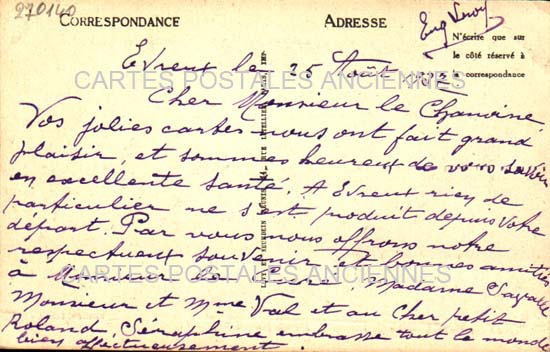 270140
CORRESPONDANCE
ADRESSE
Eug Leroy
N'écrire que sur
le côté réservé à
la correspondance
Evreux le 25 Août
CARTES POSTALES ANCIENNES
Cher Monsieur le Chanoine
Vos jolies cartes nous ont fait grand
plaisir, et sommes heureux de vous savoir
en excellente santé. A Evreux rien de
particulier ne s'est produit depuis votre
départ. Par vous nous offrons notre
respectueux souvenir et bonnes amitiés
CARTES POSTALES ANCIENNES
à Monsieur le Curé, Madame
Monsieur et Mme Val et au cher petit
Roland, Séraphine embrasse tout le monde
bien affectueusement.